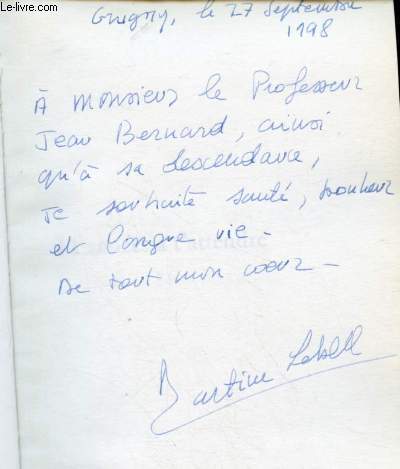 Le-livre.com
Grigny, le 27 Septembre
1998
À Monsieur le Professeur
Jean Bernard, ainsi
qu'à sa descendance,
Je souhaite santé, bonheur
et longue vie -
De tout mon coeur -
Martine